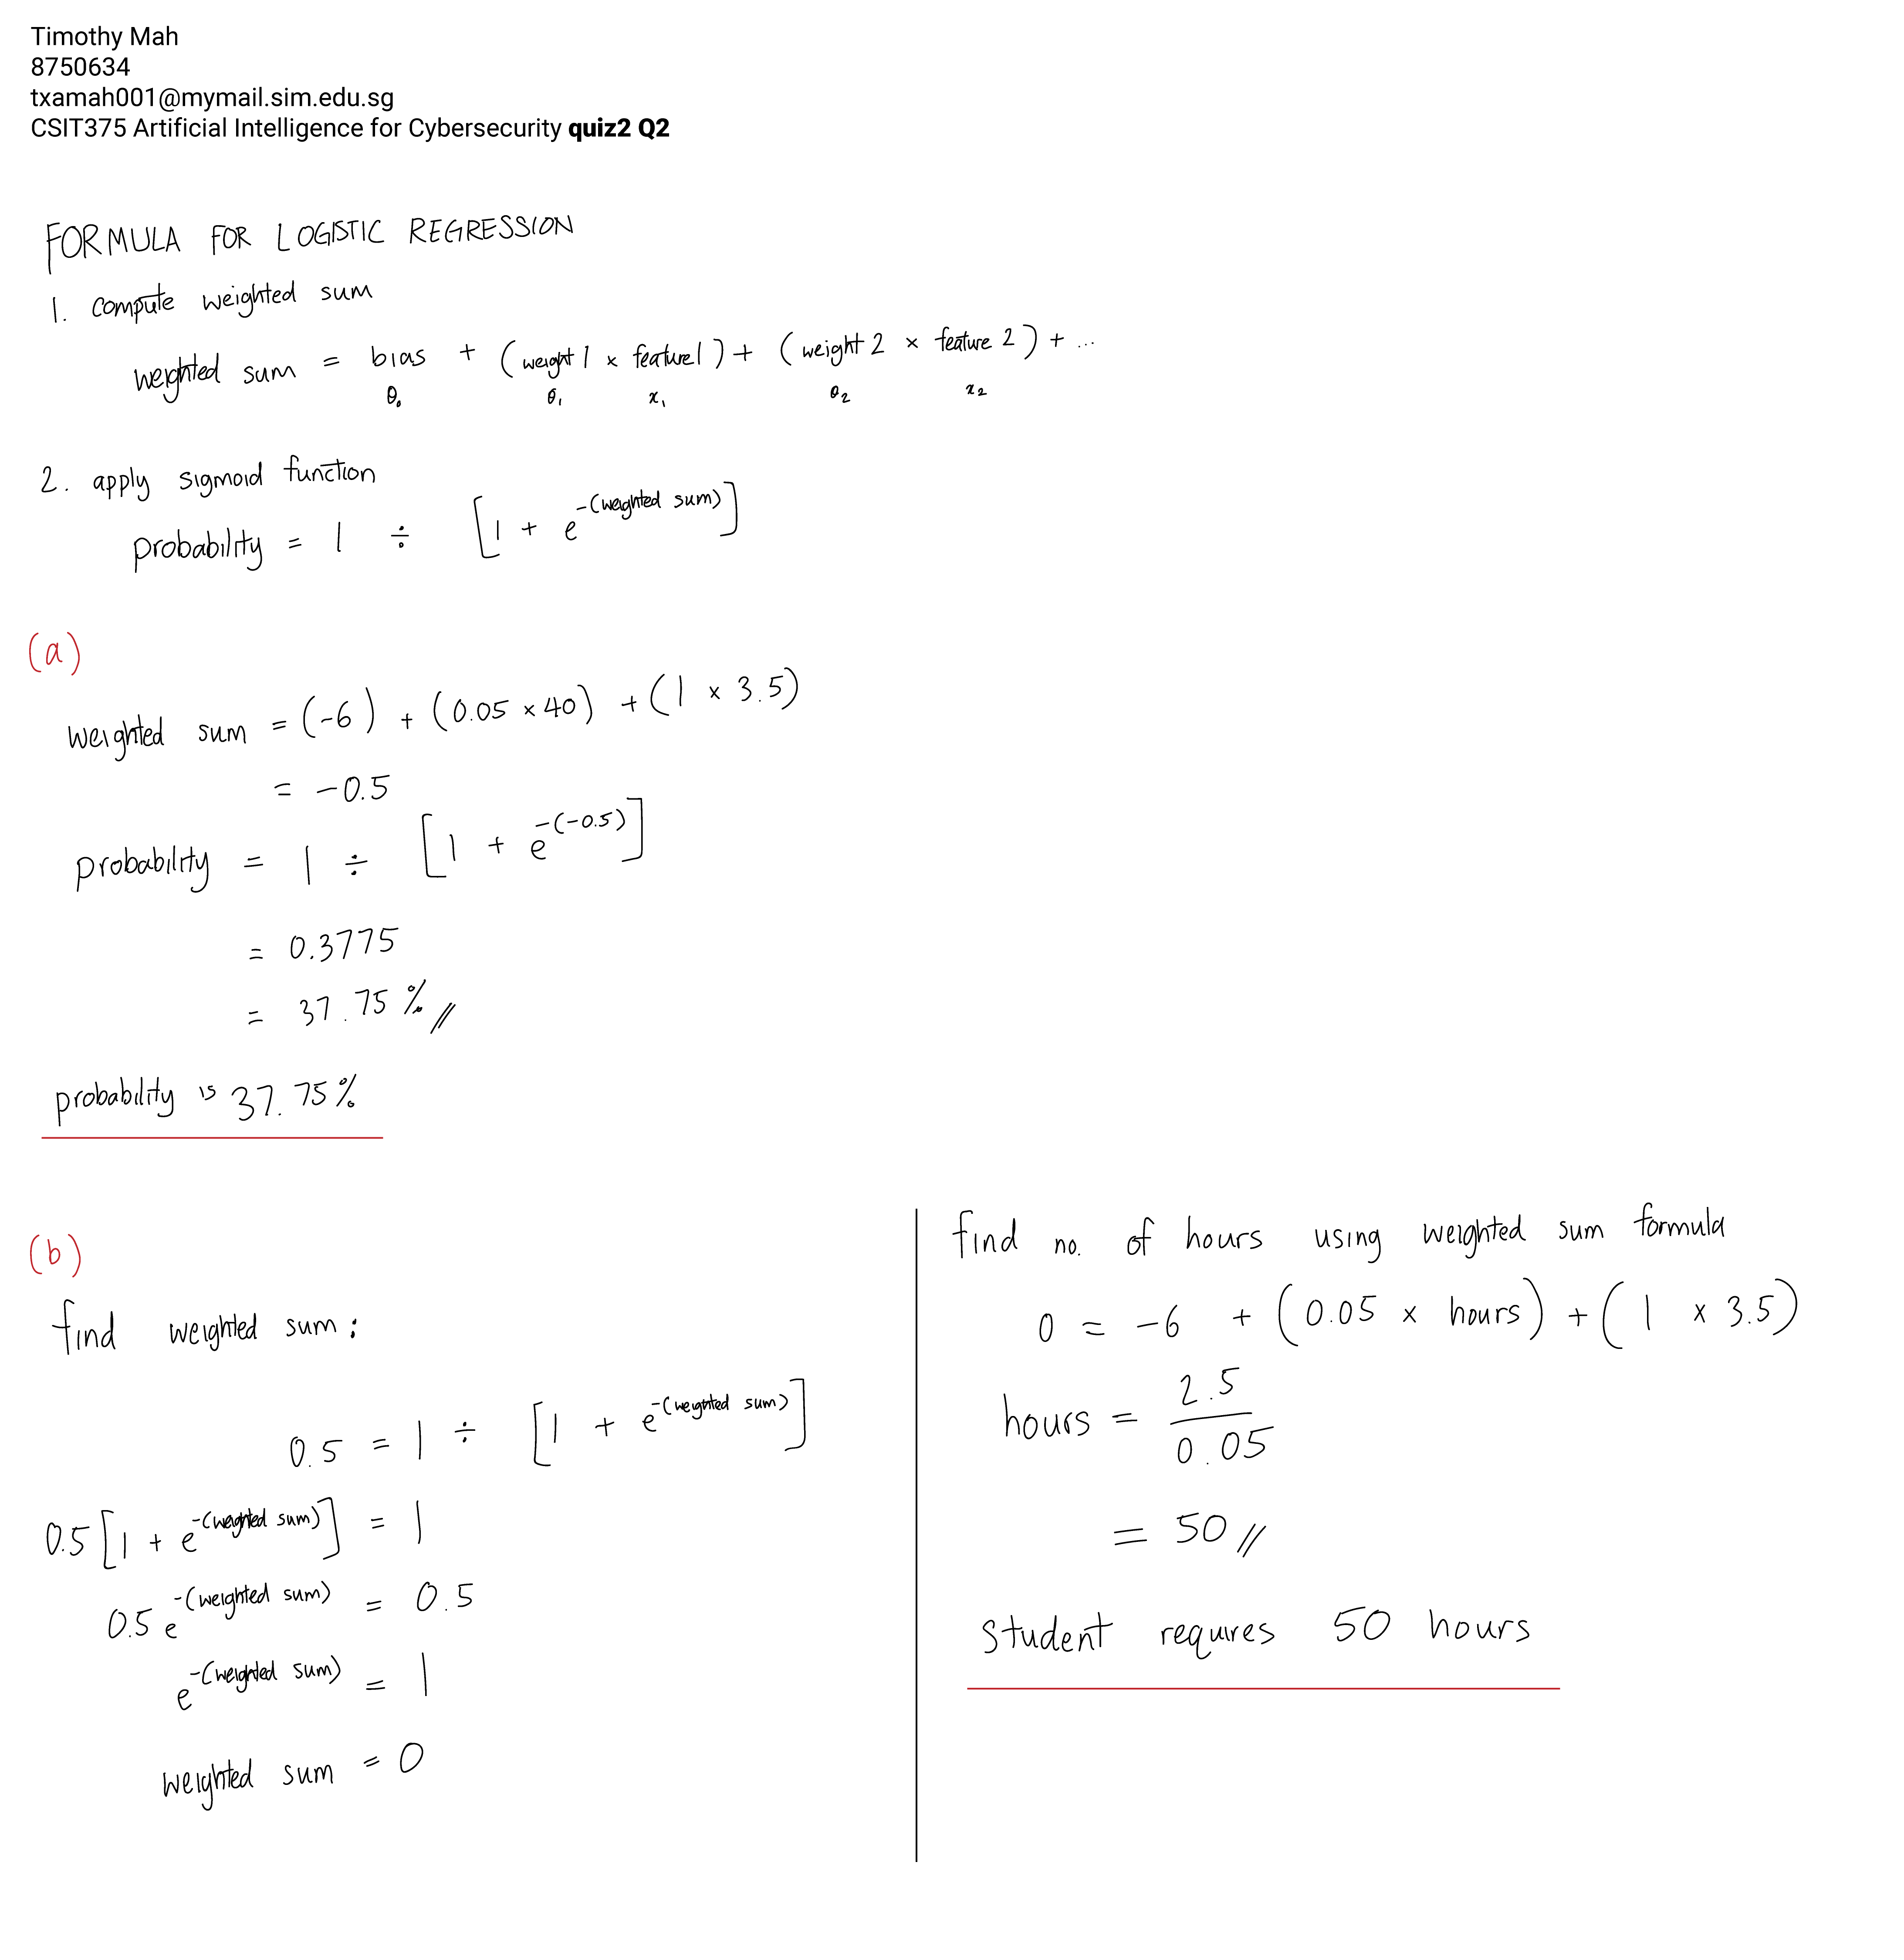 Timothy Mah
8750634
txamah001@mymail.sim.edu.sg
CSIT375 Artificial Intelligence for Cybersecurity quiz2 Q2
FORMULA FOR LOGISTIC REGRESSION
1. compute weighted sum
weighted sum = bias + (weight 1 × feature 1) + (weight 2 × feature 2) + ...
θ₀ θ₁ x₁ θ₂ x₂
2. apply sigmoid function
probability = 1 ÷ [1 + e^-(weighted sum)]
(a)
weighted sum = (-6) + (0.05 × 40) + (1 × 3.5)
= -0.5
probability = 1 ÷ [1 + e^-(-0.5)]
= 0.3775
= 37.75% //
probability is 37.75%
(b)
find weighted sum:
0.5 = 1 ÷ [1 + e^-(weighted sum)]
0.5[1 + e^-(weighted sum)] = 1
0.5 e^-(weighted sum) = 0.5
e^-(weighted sum) = 1
weighted sum = 0
find no. of hours using weighted sum formula
0 = -6 + (0.05 × hours) + (1 × 3.5)
hours = 2.5 / 0.05
= 50 //
student requires 50 hours